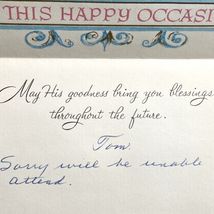 THIS HAPPY OCCASI
May His goodness bring you blessings
throughout the future.
Tom.
Sorry will be unable
attend.